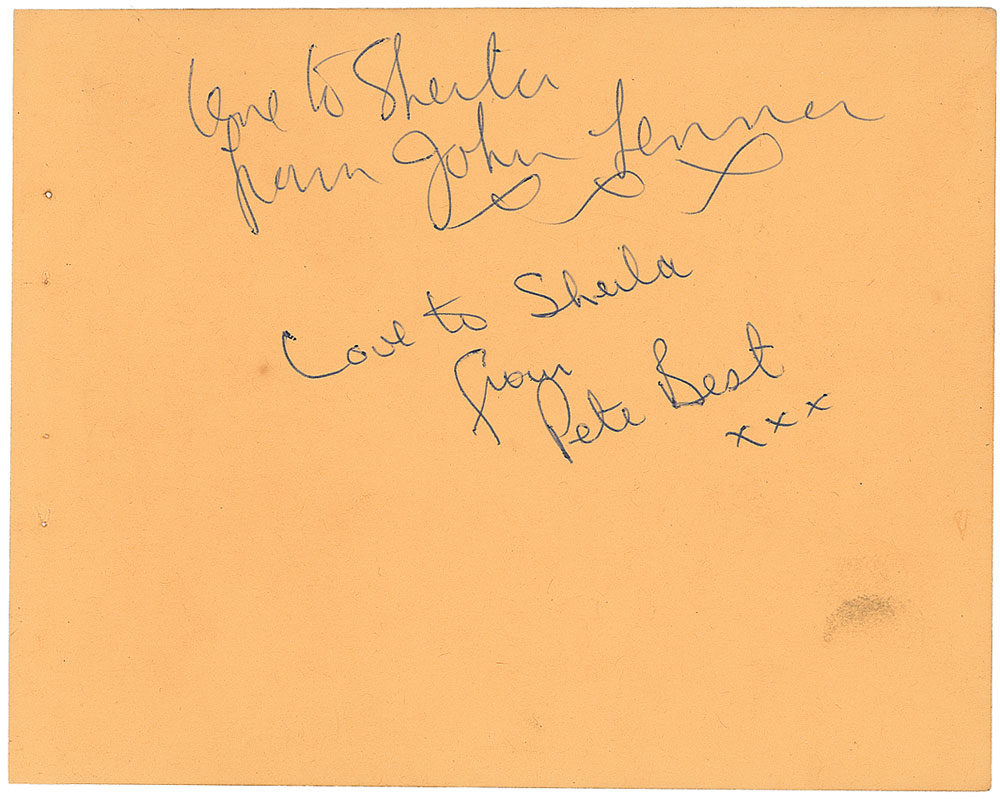 Love to Sheila
from John Lennon
x x x
Love to Sheila
from
Pete Best
x x x